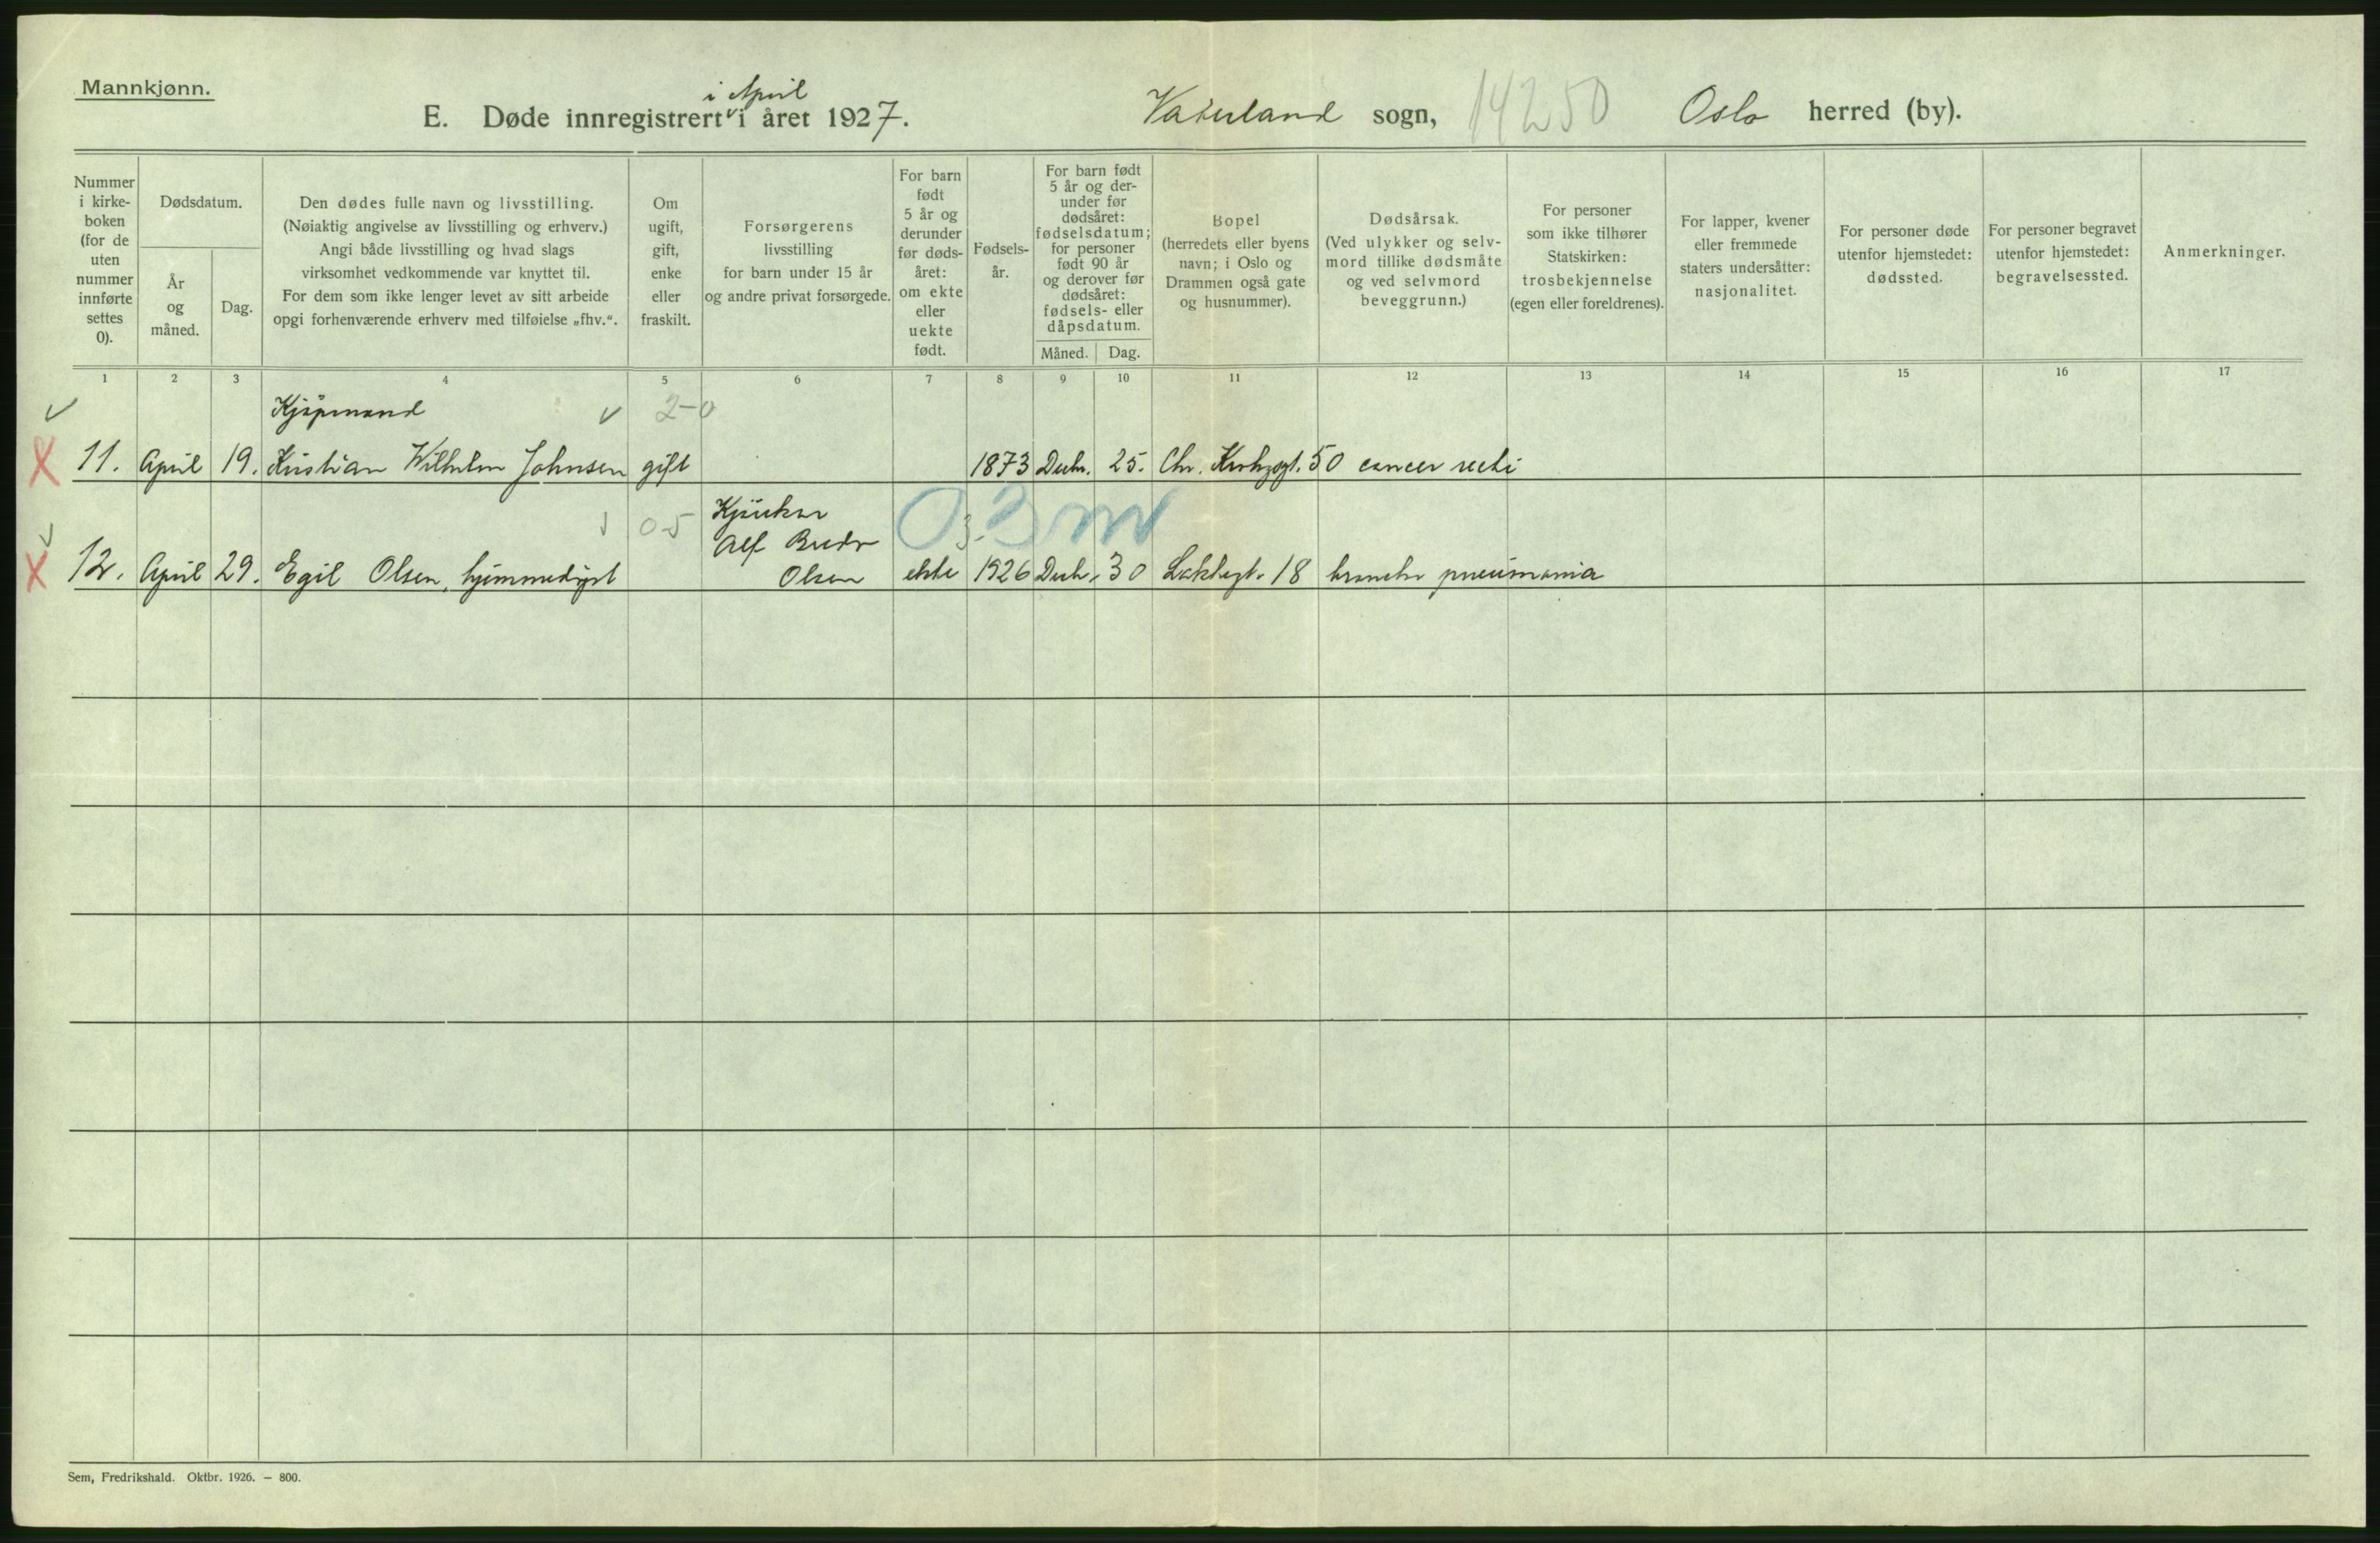 Mannkjønn.
i April
E. Døde innregistrert i året 1927.
Vaterland sogn, 14250 Oslo herred (by).
Nummer
i kirke-
boken
(for de
uten
nummer
innførte
settes
0).
Dødsdatum.
År
og
måned.
Dag.
Den dødes fulle navn og livsstilling.
(Nøiaktig angivelse av livsstilling og erhverv.)
Angi både livsstilling og hvad slags
virksomhet vedkommende var knyttet til.
For dem som ikke lenger levet av sitt arbeide
opgi forhenværende erhverv med tilføielse „fhv.“.
Om
ugift,
gift,
enke
eller
fraskilt.
Forsørgerens
livsstilling
for barn under 15 år
og andre privat forsørgede.
For barn
født
5 år og
derunder
før døds-
året:
om ekte
eller
uekte
født.
Fødsels-
år.
For barn født
5 år og der-
under før
dødsåret:
fødselsdatum;
for personer
født 90 år
og derover før
dødsåret:
fødsels- eller
dåpsdatum.
Måned. Dag.
Bopel
(herredets eller byens
navn; i Oslo og
Drammen også gate
og husnummer).
Dødsårsak.
(Ved ulykker og selv-
mord tillike dødsmåte
og ved selvmord
beveggrunn.)
For personer
som ikke tilhører
Statskirken:
trosbekjennelse
(egen eller foreldrenes).
For lapper, kvener
eller fremmede
staters undersåtter:
nasjonalitet.
For personer døde
utenfor hjemstedet:
dødssted.
For personer begravet
utenfor hjemstedet:
begravelsessted.
Anmerkninger.
1 2 3 4 5 6 7 8 9 10 11 12 13 14 15 16 17
Kjøpmand 2-0
11. April 19. Kristian Wilhelm Johnsen gift 1873 Decbr. 25. Chr. Krohgsgt. 50 cancer recti
0-5 Kjørekar 3. 3 m
Alf
12. April 29. Egil Olsen, hjemmedøpt Olsen ekte 1926 Decb. 30 Lakkegt. 18 broncho pneumonia
Sem, Fredrikshald. Oktbr. 1926. — 800.